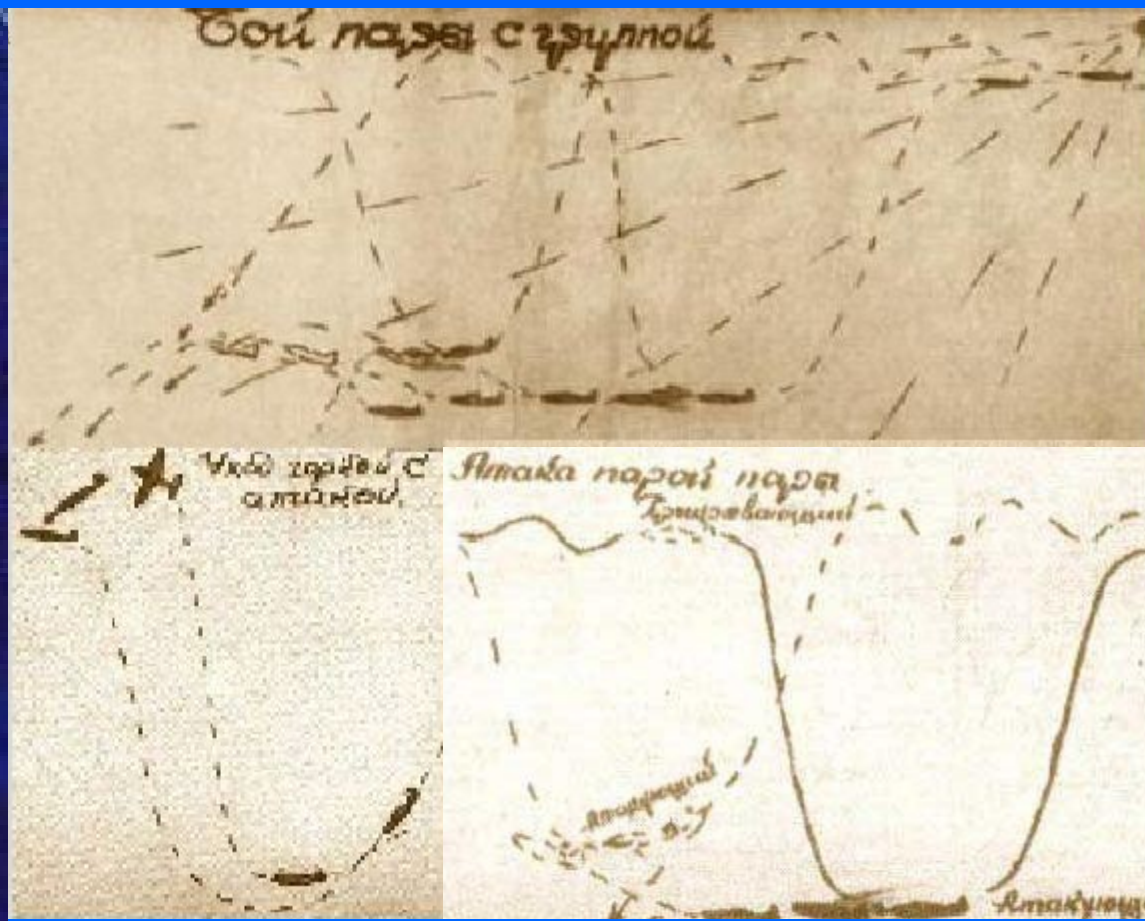 Бой пары с группой
Уход горкой с
атакой.
Атака парой пары
Прикрывающий
Атакующий